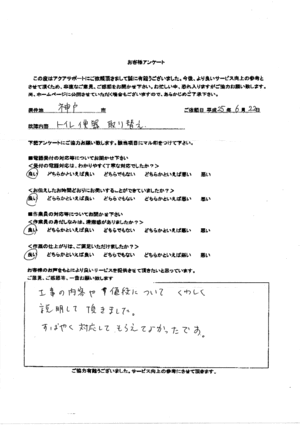 お客様アンケート
この度はアクアサポートにご依頼頂きまして誠に有難うございました。今後、より良いサービス向上の参考と
させて頂くため、率直なご意見、ご感想をお聞かせ下さい。お忙しい中、恐れ入りますがご協力お願い致します。
尚、ホームページに公開させていただく場合もございますので、あらかじめご了承下さい。
御住所 神戸 市 ご依頼日 平成 25年 6月 22日
故障内容 トイレ便器 取り替え
下記アンケートにご協力お願い致します。該当項目にマル印をつけて下さい。
■電話受付の対応等についてお聞かせ下さい
<受付の電話対応は、わかりやすく丁寧な対応でしたか?>
良い どちらかといえば良い どちらでもない どちらかといえば悪い 悪い
<お伝えしたお時間どおりにお伺いすることができていましたか?>
良い どちらかといえば良い どちらでもない どちらかといえば悪い 悪い
■作業員の対応等についてお聞かせ下さい
<作業員の身だしなみは、清潔感がありましたか?>
良い どちらかといえば良い どちらでもない どちらかといえば悪い 悪い
<作業の仕上がりは、ご満足いただけましたか?>
良い どちらかといえば良い どちらでもない どちらかといえば悪い 悪い
お客様のお声をもとにより良いサービスを提供させて頂きたいと思っています。
ご意見、ご感想等、一言お願い致します
工事の内容や 値段について くわしく
説明して頂きました。
すばやく対応してもらえてよかったです。
ご協力有難うございました。サービス向上の参考にさせて頂きます。